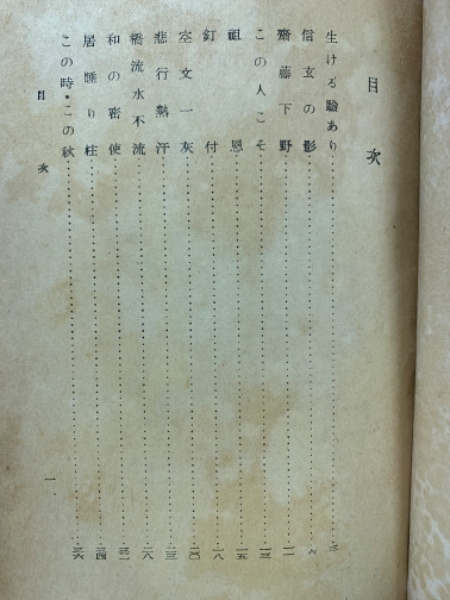 目次
生ける驗あり……三
信玄の影……六
齋藤下野……一一
この人こそ……一三
祖恩……一五
釘付……一八
空文一灰……二〇
悲行熱汗……二三
橋流水不流……二八
和の密使……三一
居睡り柱……三四
この時・この秋……三六
目次
一